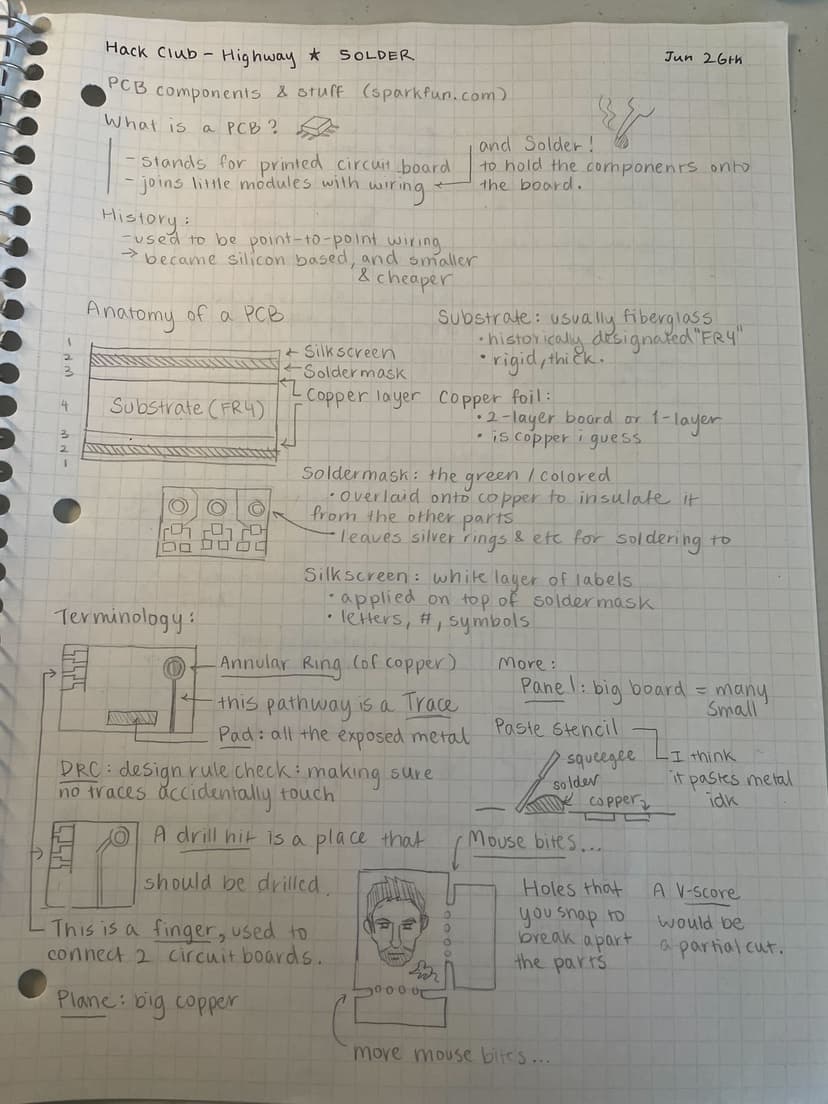 Hack Club - Highway ★ SOLDER
Jun 26th
PCB components & stuff (sparkfun.com)
What is a PCB?
- stands for printed circuit board
- joins little modules with wiring
and Solder!
to hold the components onto
the board.
History:
- used to be point-to-point wiring
→ became silicon based, and smaller
& cheaper
Anatomy of a PCB
1
2
3
4
3
2
1
Substrate (FR4)
← Silkscreen
← Soldermask
Copper layer
Substrate: usually fiberglass
• historically designated "FR4"
• rigid, thick.
Copper foil:
• 2-layer board or 1-layer
• is copper i guess
Soldermask: the green / colored
• overlaid onto copper to insulate it
from the other parts
leaves silver rings & etc for soldering to
Silkscreen: white layer of labels
• applied on top of soldermask
• letters, #, symbols
Terminology:
Annular Ring (of copper)
this pathway is a Trace
Pad: all the exposed metal
DRC: design rule check: making sure
no traces accidentally touch
More:
Panel: big board = many
small
Paste stencil
squeegee
solder
copper
I think
it pastes metal
idk
A drill hit is a place that
should be drilled.
This is a finger, used to
connect 2 circuit boards.
Plane: big copper
Mouse bites...
Holes that
you snap to
break apart
the parts
A V-score
would be
a partial cut.
more mouse bites...